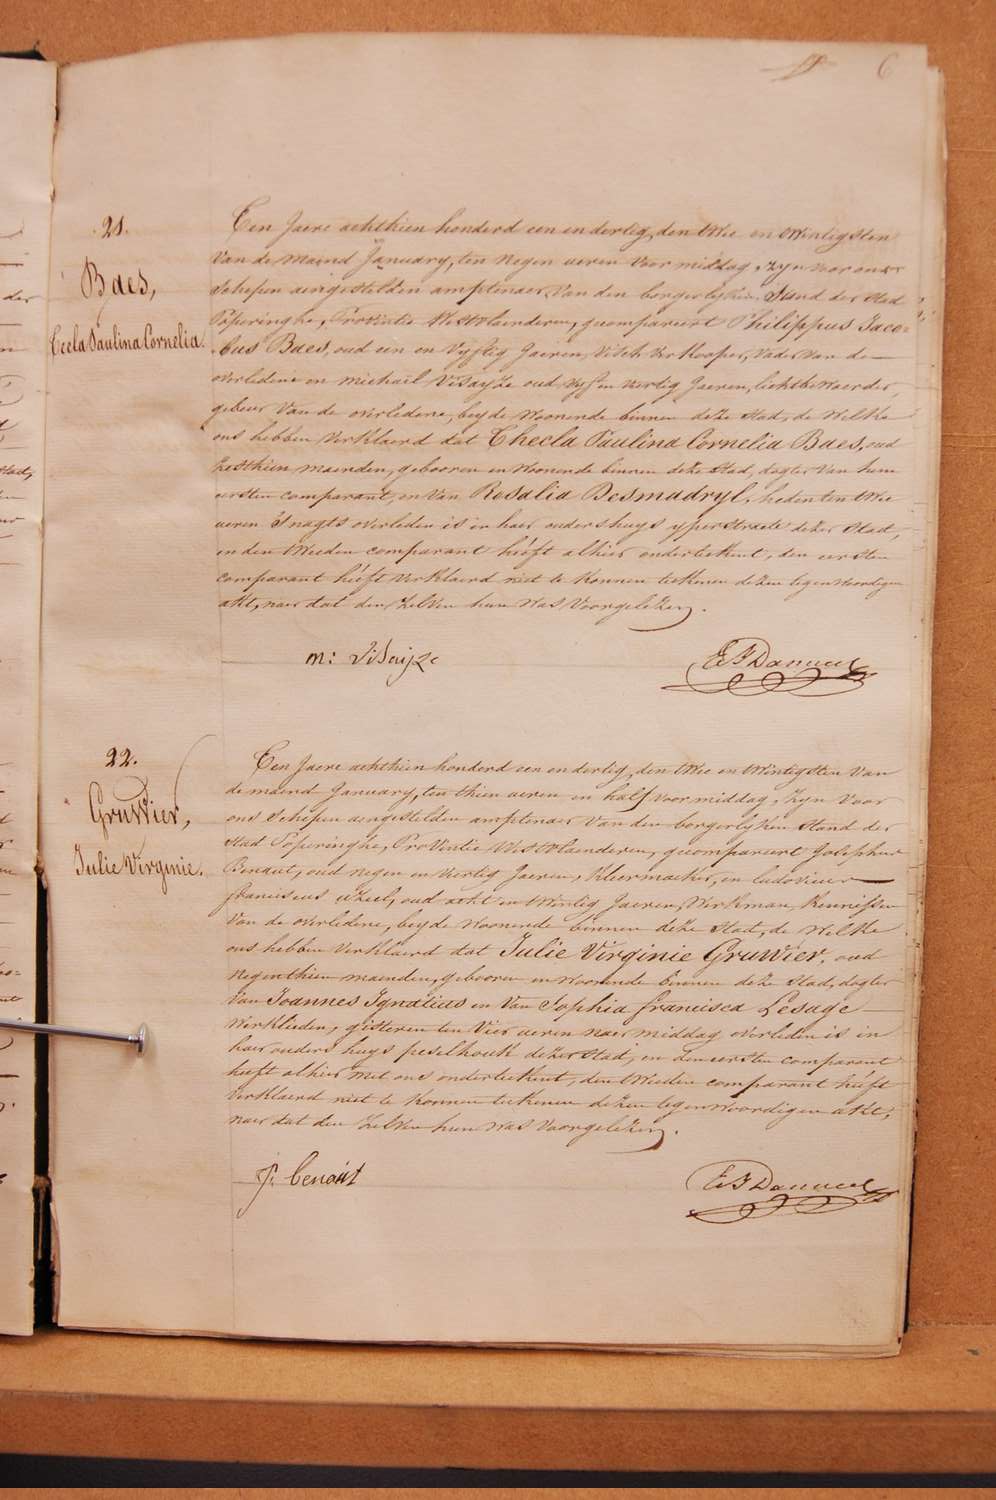 6
21.
Baes,
Tecla Paulina Cornelia.
Een Jaere achthien honderd een en dertig, den twee en twintigsten
van de maend January, ten negen ueren voormiddag, zyn voor onser
Schepen aengestelden amptenaer van den borgerlyken Stand der Stad
Poperinghe, Provintie Westvlaenderen, gecompareert Philippus Jaco-
bus Baes, oud een en vyftig Jaeren, Vitch verkooper, vader van de
overledene en michaël Visayze oud vyf en veertig Jaeren,
gebuer van de overledene, beyde woonende binnen deze Stad, de welke
ons hebben verklaerd dat Thecla Paulina Cornelia Baes, oud
zesthien maenden, gebooren en woonende binnen deze Stad, dogter van hem
eersten comparant, en van Rosalia Desmadryl, heden ten twee
ueren s'nagts overleden is in haer ouders huys yperstraete dezer Stad,
en den tweeden comparant heéft alhier onderteekent, den eersten
comparant heéft verklaerd niet te konnen teekenen dezen tegenwoordigen
akt, naer dat den zelven hun was voorgelezen.
m: Visayze
E F Danneel
22.
Gruwier,
Julie Virginie.
Een Jaere achthien honderd een en dertig, den twee en twintigsten van
de maend January, ten thien ueren en half voormiddag, zyn voor
ons Schepen aengestelden amptenaer van den borgerlyken Stand der
Stad Poperinghe, Provintie Westvlaenderen, gecompareert Josephus
Benaut, oud negen en veertig Jaeren, kleermaeker, en ludovicus
franciscus oud acht en twintig Jaeren, Werkman, kennissen
van de overledene, beyde woonende binnen deze Stad, de welke
ons hebben verklaerd dat Julie Virginie Gruwier, oud
negenthien maenden, gebooren en woonende binnen deze Stad, dogter
van Joannes Ignatius en van Sophia francisca Lesage
Werklieden, gisteren ten vier ueren naermiddag overleden is in
haer ouders huys peselhoek dezer Stad, en den eersten comparant
heeft alhier met ons onderteekent, den tweeden comparant heéft
verklaerd niet te konnen teekenen dezen tegenwoordigen akt,
naer dat den zelven hun was voorgelezen.
J: benaút
E F Danneel